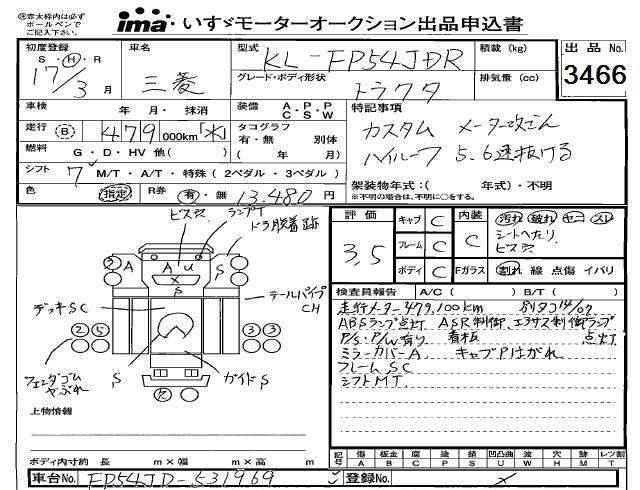 ㊟赤太枠内は必ず
ボールペンで
ご記入下さい。
ima いすゞモーターオークション出品申込書
初度登録
S・H・R
17/3月
車名
三菱
型式
KL-FP54JDR
グレード・ボディ形状
トラクタ
積載(kg)
排気量(cc)
出品No.
3466
車検 年・月・抹消
装備 A.P.P
C.S.W
特記事項
カスタム メーター改ざん
ハイルーフ 5.6速抜ける
走行 B 479,000km「水」
タコグラフ
有・無 別体
(年 月)
燃料 G・D・HV 他( )
シフト 7 M/T・A/T・特殊(2ペダル・3ペダル)
架装物年式:( 年式)・不明
※不明の場合は、不明に○をする。
色 指定 R券 有・無 13,480円
ビス穴 ランプT
ドラ脱着跡
評価 3.5
キャブ C 内装 C 汚れ 破れ ヤニ スレ
シートへたり
ビス穴
フレーム C
ボディ C Fガラス 割れ 線 点傷 イバリ
3 A A U S
S
デッキSC
テールパイプ
CH
2 5 3 3
フェンダゴム
やぶれ
S ガイドS
検査員報告 A/C( ) B/T( )
走行メーター479,100km 別タコ14/07
ABSランプ点灯 ASR制御、エアサス制御ランプ
点灯
P/S・P/W有り 看板
ミラーカバーA キャブPはがれ
フレームSC
シフトMT
上物情報
ボディ内寸約 長 m×幅 m×高 m
記号 傷A 板金B 腐C 塗P 錆S 凹凸曲U 波W 穴H 跡M レツ割T
車台No. FP54JD-531969
登録No.